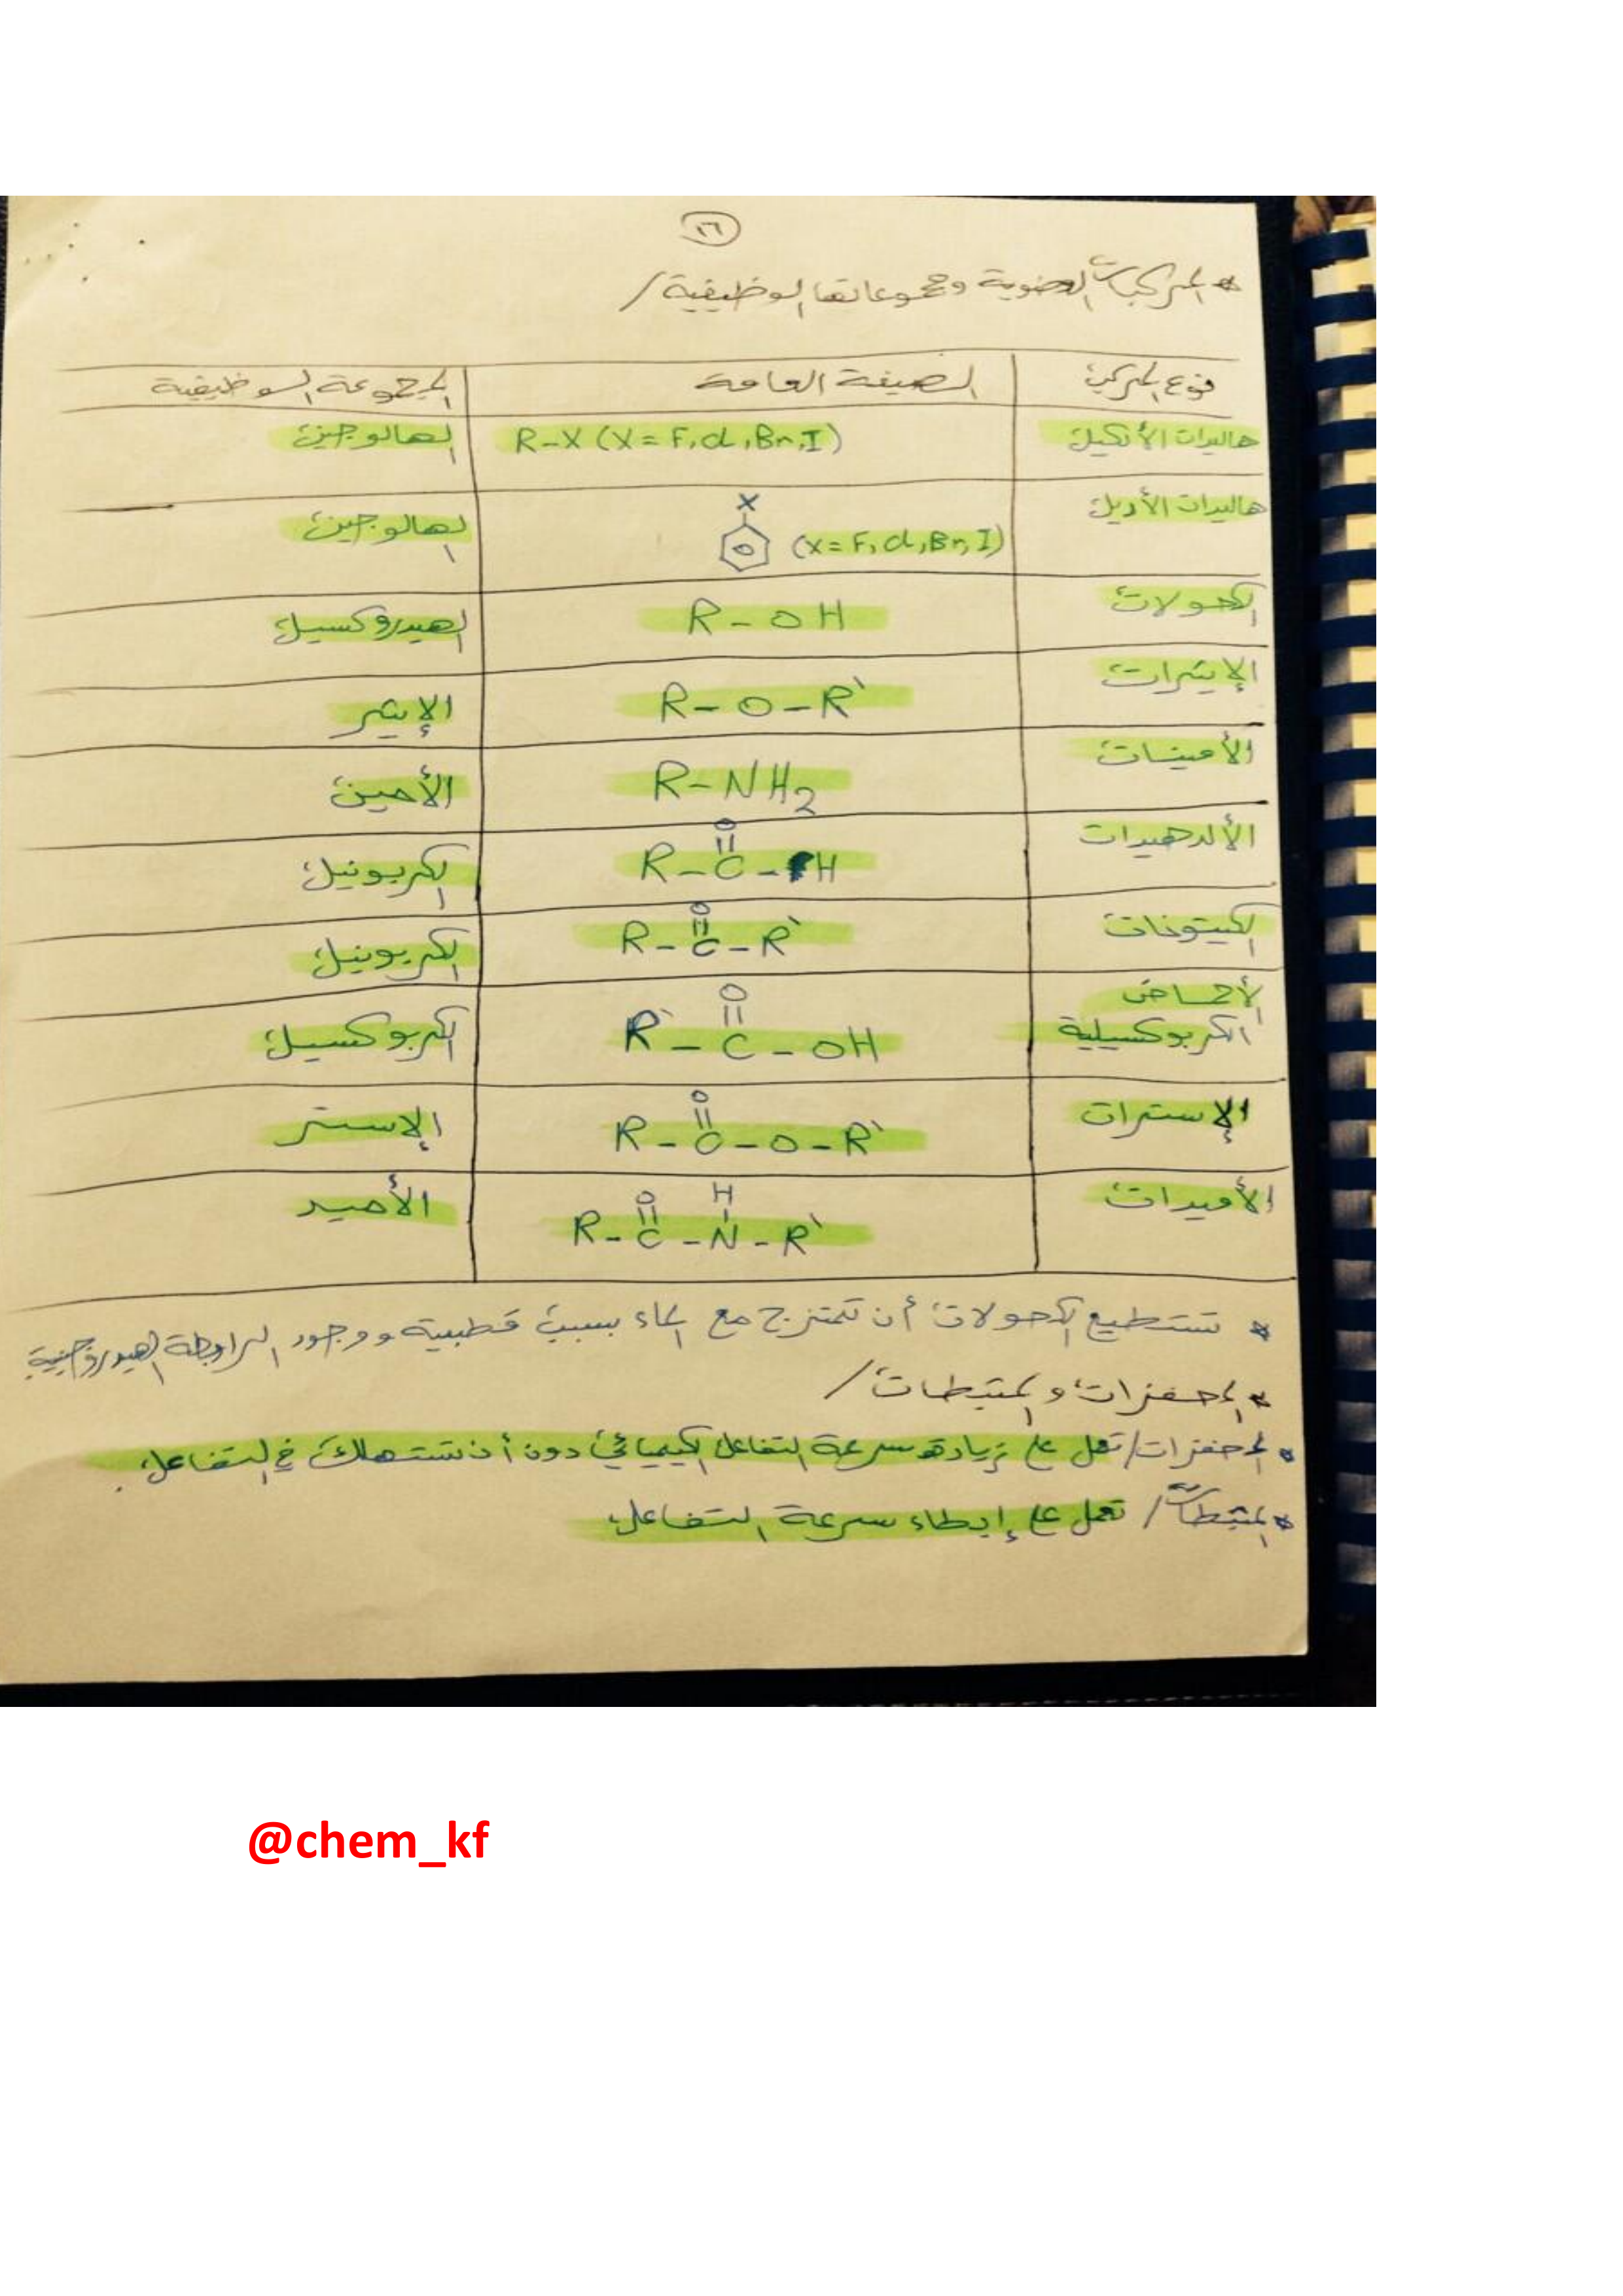 ١٦
* المركبات العضوية ومجموعاتها الوظيفية /
نوع المركب الصيغة العامة المجموعة الوظيفية
هاليدات الألكيل R-X (X = F, Cl, Br, I) الهالوجين
هاليدات الأريل X (X = F, Cl, Br, I) الهالوجين
الكحولات R-OH الهيدروكسيل
الإيثرات R-O-R` الإيثر
الأمينات R-NH2 الأمين
الألدهيدات R-C(=O)-H الكربونيل
الكيتونات R-C(=O)-R` الكربونيل
الأحماض الكربوكسيلية R`-C(=O)-OH الكربوكسيل
الإسترات R-C(=O)-O-R` الإستر
الأميدات R-C(=O)-N(H)-R` الأميد
* تستطيع الكحولات أن تمتزج مع الماء بسبب قطبيته ووجود الرابطة الهيدروجينية
* المحفزات والمثبطات /
* المحفزات / تعمل على زيادة سرعة التفاعل الكيميائي دون أن تستهلك في التفاعل.
* المثبطات / تعمل على إبطاء سرعة التفاعل
@chem_kf